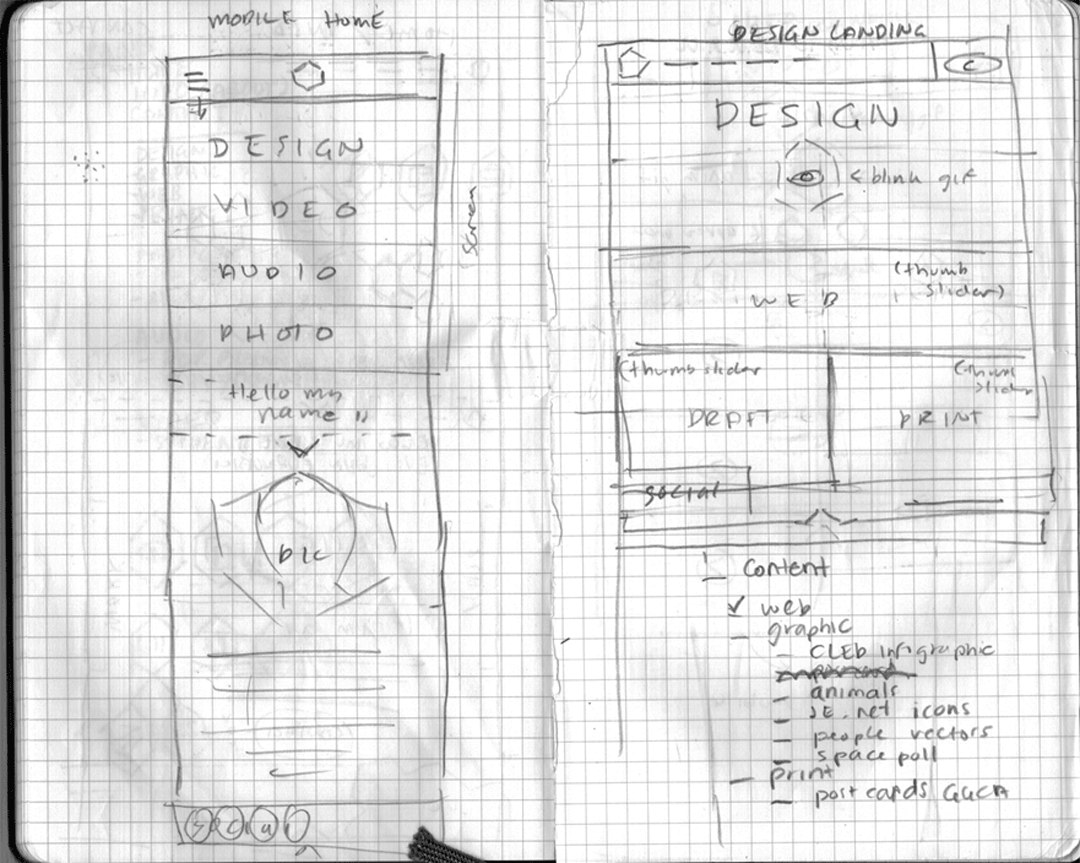 MOBILE HOME
DESIGN
VIDEO
AUDIO
PHOTO
Screen
Hello my
name is
pic
DESIGN LANDING
C
DESIGN
< blink gif
(thumb
slider)
WEB
(thumb slider
(thumb
slider
DRAFT
PRINT
social
Content
web
graphic
CLEb infographic
animals
SE.net icons
people vectors
space poll
print
post cards GUCA